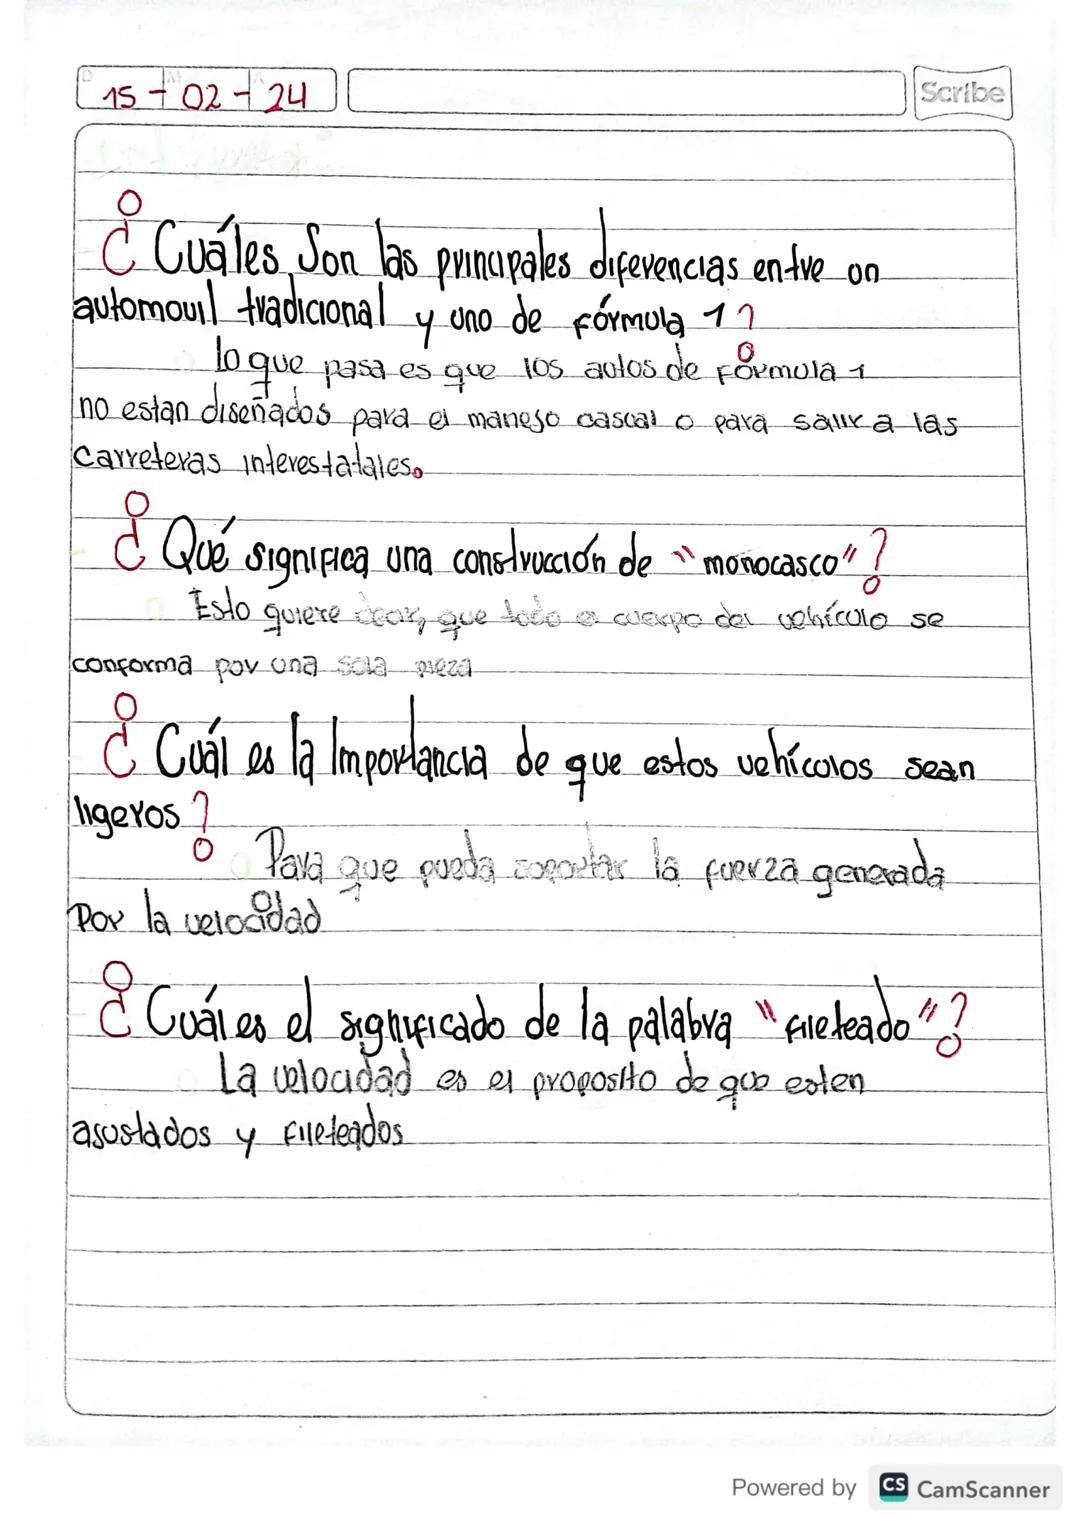 D M A
15 - 02 - 24
Scribe
¿Cuáles Son las principales diferencias entre un
automovil tradicional y uno de fórmula 1?
lo que pasa es que los autos de Fórmula 1
no estan diseñados para el manejo casual o para salir a las
Carreteras interestatales.
¿Qué significa una construcción de "monocasco"?
Esto quiere decir, que todo el cuerpo del vehículo se
conforma por una sola pieza
¿Cuál es la Importancia de que estos vehículos sean
ligeros?
Para que pueda soportar la fuerza generada
Por la velocidad
¿Cuál es el significado de la palabra "fileteado"?
La velocidad es el proposito de que esten
asustados y fileteados
Powered by CS CamScanner